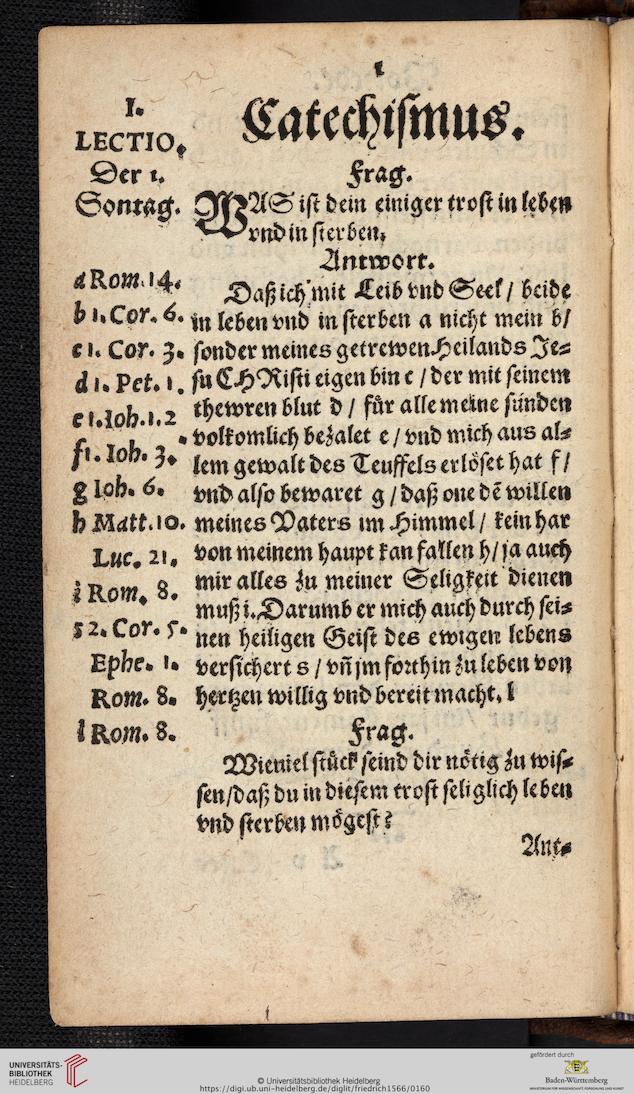 1
Catechismus.
I.
LECTIO.
Der 1.
Sontag.
Frag.
WAS ist dein einiger trost in leben
vnd in sterben,
Antwort.
Daß ich mit Leib vnd Seel / beide
in leben vnd in sterben a nicht mein b/
sonder meines getrewen Heilands Je=
su CHRisti eigen bin c / der mit seinem
thewren blut d / für alle meine sünden
volkomlich bezalet e / vnd mich aus al=
lem gewalt des Teuffels erlöset hat f /
vnd also bewaret g / daß one dē willen
meines Vaters im Himmel / kein har
von meinem haupt kan fallen h / ja auch
mir alles zu meiner Seligkeit dienen
muß i. Darumb er mich auch durch sei=
nen heiligen Geist des ewigen lebens
versichert s / vñ jm forthin zu leben von
hertzen willig vnd bereit macht. l
a Rom. 14.
b 1. Cor. 6.
c 1. Cor. 3.
d 1. Pet. 1.
e 1. Ioh. 1.2
f 1. Ioh. 3.
g Ioh. 6.
h Matt. 10.
Luc. 21.
i Rom. 8.
s 2. Cor. 5.
Ephe. 1.
Rom. 8.
l Rom. 8.
Frag.
Wieuiel stück seind dir nötig zu wis=
sen/daß du in diesem trost seliglich leben
vnd sterben mögest?
Ant=
UNIVERSITÄTS-
BIBLIOTHEK
HEIDELBERG
© Universitätsbibliothek Heidelberg
https://digi.ub.uni-heidelberg.de/diglit/friedrich1566/0160
gefördert durch
Baden-Württemberg
MINISTERIUM FÜR WISSENSCHAFT, FORSCHUNG UND KUNST